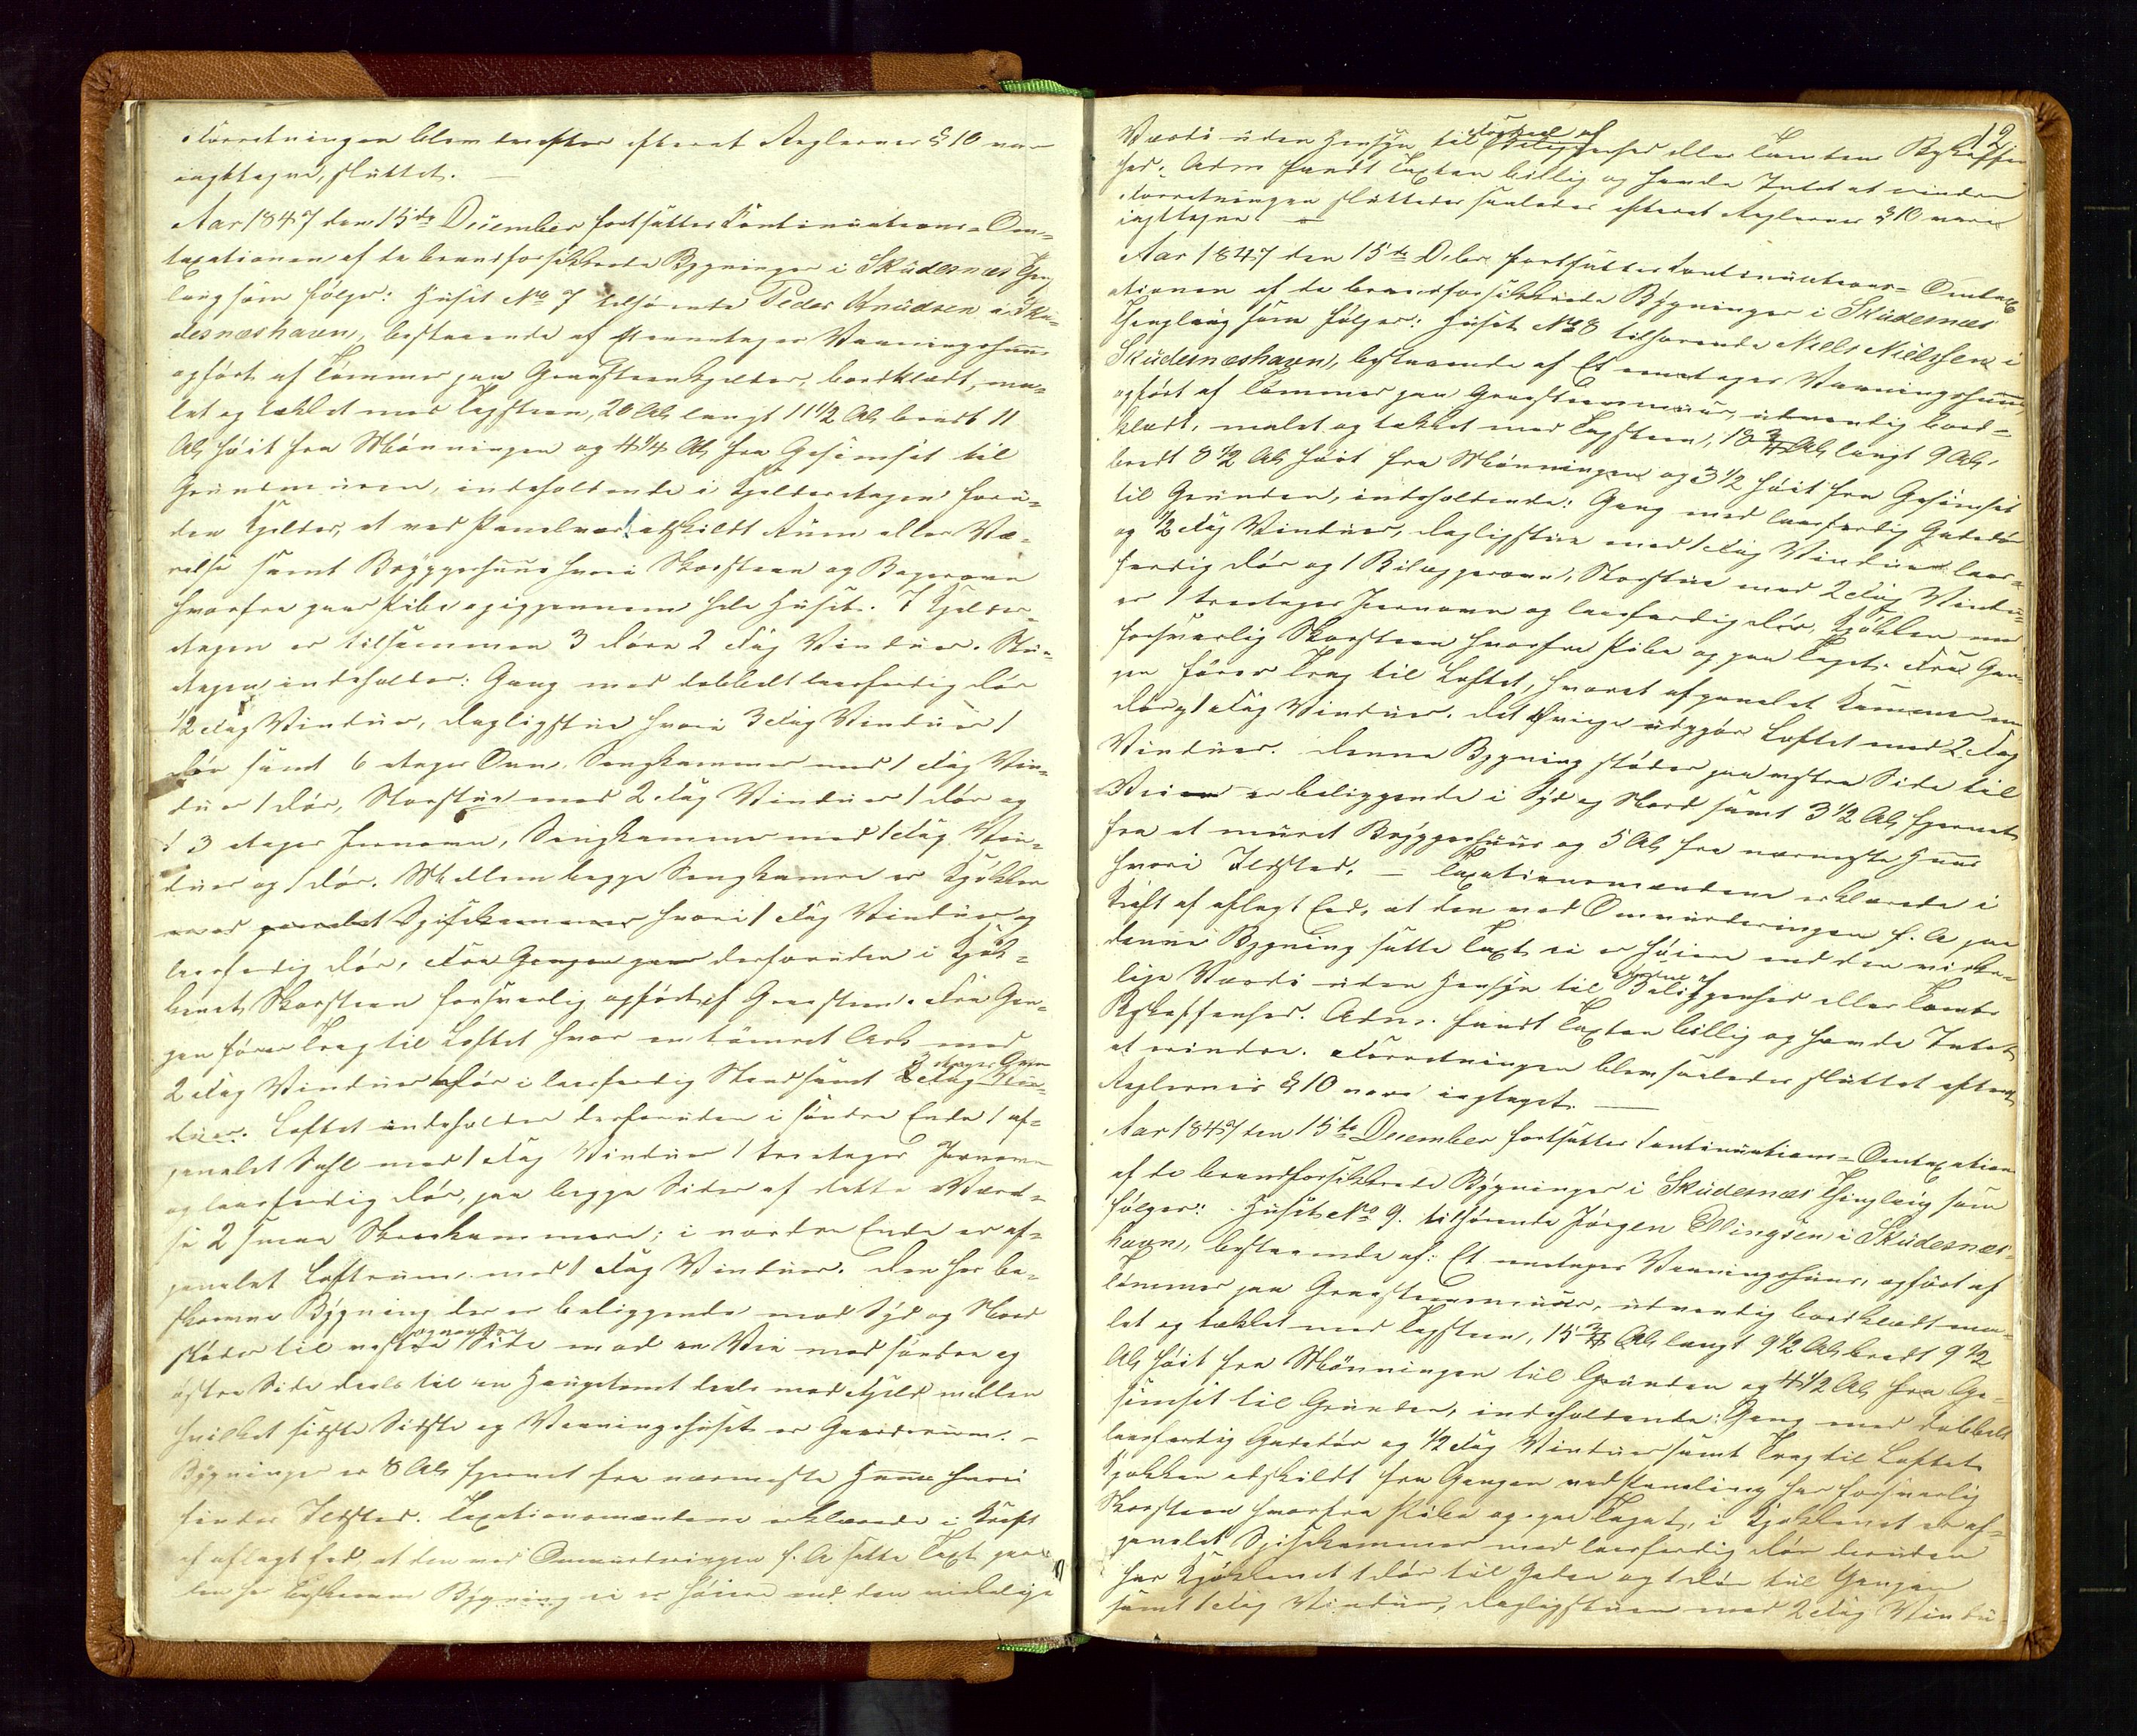 Forretningen blev derefter efterat Reglernes § 10 var
iagttagne, sluttet. —
Aar 1847 den 15de December fortsattes Continuations-Om-
taxationen af de brandforsikkrede Bygninger i Skudesnæs Thing-
laug som følger: Huset No 7 tilhørende Peder Knudsen i Sku-
desnæshavn, bestaaende af Eenetages Vaaningshuus
opført af Tømmer paa Graasteenskjelder, bordklædt, ma-
let og tækket med Tagsteen, 20 Al. langt 11 1/2 Al. bredt 11
Al. høit fra Mønningen og 4 1/4 Al. fra Gesimset til
Grundmuren, indeholdende i Kjelderetagen foru-
den Kjelder, et ved Panelværk adskildt Rum eller Væ-
relse samt Bryggerhuus hvori Skorsteen og Bagerovn
hvorfra gaar Pibe op igjennem hele Huset. I Kjelder-
etagen er tilsammen 3 Døre 2 Fag Vinduer. Stu-
etagen indeholder: Gang med dobbelt laasfærdig Dør
1/2 Fag Vinduer, Dagligstue hvori 3 Fag Vinduer 1
Dør samt 6 etages Ovn, Sengkammer med 1 Fag Vin-
duer 1 Dør, Storstue med 2 Fag Vinduer 1 Dør og
1 3 etages Jernovn, Sengkammer med 1 Fag Vin-
duer og 1 Dør. Mellem begge Sengkamre er Kjøkken
med panelet Spisekammer hvori 1 Fag Vinduer og
laasfærdig Dør, fra Gangen gaar desforuden i Kjøk-
kenet Skorsteen forsvarlig opført af Graasteen. Fra Gan-
gen fører Trap til Loftet hvor en tømret Ark med
2 Fag Vinduer Dør i laasfærdig Stand samt 3 etages Ovn 2 Fag Vin-
duer. Loftet indeholder desforuden i søndre Ende 1 af-
panelet Sahl med 1 Fag Vinduer 1 treetages Jernovn
og laasfærdig Dør, paa begge Sider af dette Værel-
se 2 smaa Skraakammere; i nordre Ende er af-
panelet Loftrum med 1 Fag Vinduer. Den her be-
skrevne Bygning der er beliggende mod Syd og Nord
støder til vestre og nordre Side mod en Vei mod søndre og
østre Side deels til en Haugetomt deels mod Fjeld mellem
hvilket sidste Sidste og Vaaningshuset er Gaardsrum. —
Bygningen er 8 Al. fjernet fra nærmeste Huus hvori
findes Ildsted. Taxationsmændene erklærede i Kraft
af aflagt Eed, at den ved Omvurderingen s. A. satte Taxt paa
den her beskrevne Bygning ei er høiere end den virkelige
19
Værdi uden Hensyn til Fordeel af Beliggenhed eller Tomtens Beskaffen-
hed. Adm. fandt Taxten billig og havde Intet at erindre
Forretningen sluttedes saaledes efterat Reglernes § 10 vare
iagttagne. —
Aar 1847 den 15de Decbr. fortsattes Continuations-Omtax-
ationen af de brandforsikkrede Bygninger i Skudesnæs
Thinglaug som følger: Huset No 8 tilhørende Niels Nielssen i
Skudesnæshavn, bestaaende af Et eenetages Vaaningshuus,
opført af Tømmer paa Graasteensmuur, udvendig bord-
klædt, malet og tækket med Tagsteen, 18 3/4 Al. langt 9 Al.
bredt 8 1/2 Al. høit fra Mønningen og 3 1/2 høit fra Gesimset
til Grunden, indeholdende: Gang med laasfærdig Gadedør
og 1/2 Fag Vinduer, Dagligstue med 1 Fag Vinduer laas-
færdig Dør og 1 Bilæggerovn, Storstue med 2 Fag Vindu-
er 1 treetages Jernovn og laasfærdig Dør, Kjøkken med
forsvarlig Skorsteen hvorfra Pibe op paa Taget. Fra Gan-
gen fører Trap til Loftet, hvoraf afpanelet Kammer med
Dør og 1 Fag Vinduer. Det øvrige udgjør Loftet med 2 Fag
Vinduer. Denne Bygning støder paa østre Side til
Veien er beliggende i Syd og Nord samt 3 1/2 Al. fjernet
fra et muret Bryggerhuus og 5 Al. fra nærmeste Huus
hvori Ildsted. — Taxationsmændene erklærede i
Kraft af aflagt Eed, at den ved Omvurderingen s. A. paa
denne Bygning satte Taxt ei er høiere end den virke-
lige Værdi uden Hensyn til Fordeel af Beliggenhed eller Tomts
Beskaffenhed. Adm. fandt Taxten billig og havde Intet
at erindre. Forretningen blev saaledes sluttet efterat
Reglernes § 10 vare iagttaget. —
Aar 1847 den 15de December fortsattes Continuations-Omtaxation
af de brandforsikkrede Bygninger i Skudesnæs Thinglaug som
følger: Huset No 9. tilhørende Jørgen Ellingsen i Skudesnæs-
havn, bestaaende af: Et eenetages Vaaningshuus, opført af
Tømmer paa Graasteensmuur, udvendig bordklædt ma-
let og tækket med Tagsteen, 15 3/4 Al. langt 9 1/2 Al. bredt 9 1/2
Al. høit fra Mønningen til Grunden og 4 1/2 Al. fra Ge-
simset til Grunden, indeholdende: Gang med dobbelt
laasfærdig Gadedør og 1/2 Fag Vinduer samt Trap til Loftet
Kjøkken adskildt fra Gangen ved Paneling har forsvarlig
Skorsteen hvorfra Pibe op paa Taget, i Kjøkkenet er af-
panelet Spisekammer med laasfærdig Dør desuden
har Kjøkkenet 1 Dør til Gaden og 1 Dør til Gangen
samt 1 Fag Vinduer, Dagligstuen med 2 Fag Vindu-